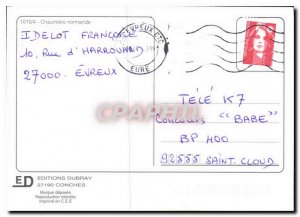 1010/4 - Chaumière normande
IDELOT FRANÇOISE
10, Rue d'HARROUARD
27000. ÉVREUX
EVREUX C.T.C
EURE
TÉLÉ K7
Concours "BABE"
BP 400
92555 SAINT. CLOUD
ED EDITIONS DUBRAY
27190 CONCHES
Marque déposée
Reproduction interdite
Imprimé en C.E.E